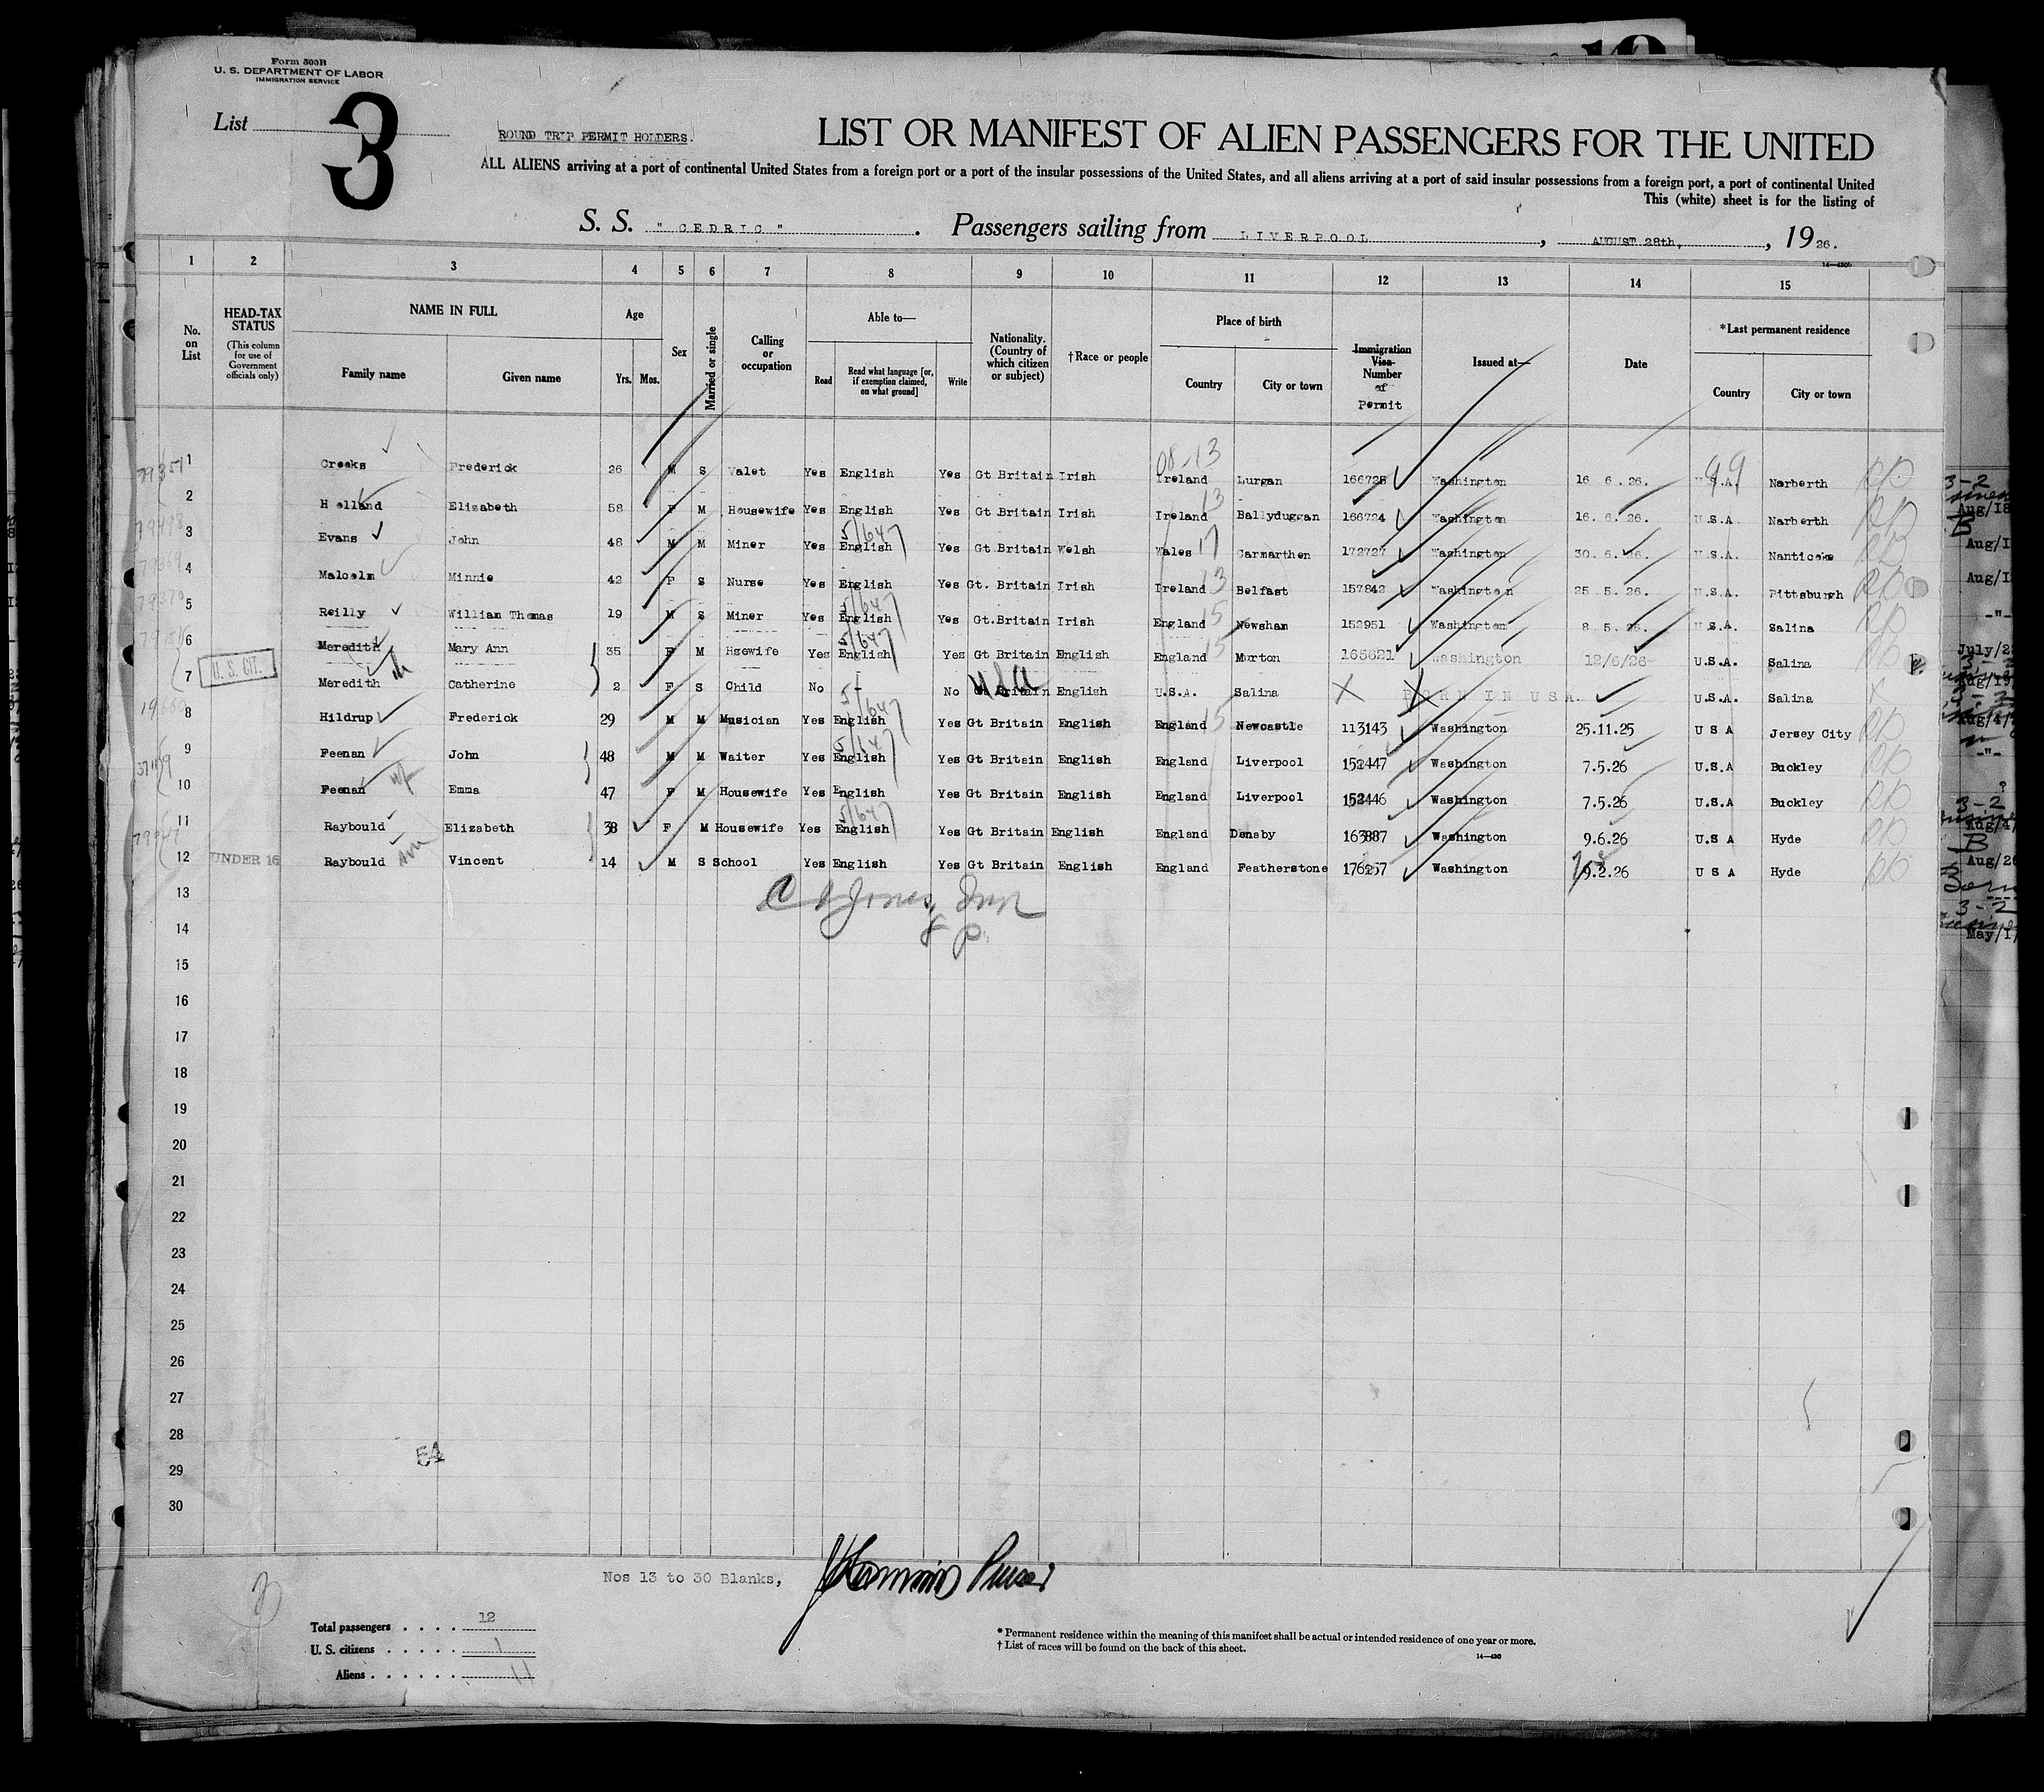 Form 500B
U. S. DEPARTMENT OF LABOR
IMMIGRATION SERVICE
List 3
ROUND TRIP PERMIT HOLDERS.
LIST OR MANIFEST OF ALIEN PASSENGERS FOR THE UNITED
ALL ALIENS arriving at a port of continental United States from a foreign port or a port of the insular possessions of the United States, and all aliens arriving at a port of said insular possessions from a foreign port, a port of continental United
This (white) sheet is for the listing of
S. S. "CEDRIC". Passengers sailing from LIVERPOOL, AUGUST 28th, , 1926.
1 2 3 4 5 6 7 8 9 10 11 12 13 14 15
No. on List
HEAD-TAX STATUS
(This column for use of Government officials only)
NAME IN FULL
Family name Given name
Age
Yrs. Mos.
Sex
Married or single
Calling or occupation
Able to—
Read
Read what language [or, if exemption claimed, on what ground]
Write
Nationality. (Country of which citizen or subject)
†Race or people
Place of birth
Country City or town
Immigration Visa Number of Permit
Issued at—
Date
*Last permanent residence
Country City or town
1 Creeks Frederick 26 M S Valet Yes English Yes Gt Britain Irish Ireland Lurgan 166725 Washington 16 6.26. U.S.A. Narberth
2 Holland Elizabeth 58 F M Housewife Yes English Yes Gt Britain Irish Ireland Ballyduggan 166724 Washington 16.6.26. U.S.A Narberth
3 Evans John 48 M M Miner Yes English Yes Gt.Britain Welsh Wales Carmarthen 172727 Washington 30.6.26. U.S.A. Nanticoke
4 Malcolm Minnie 42 F S Nurse Yes English Yes Gt. Britain Irish Ireland Belfast 157842 Washington 25 5.26. U.S.A. Pittsburgh
5 Reilly William Thomas 19 M S Miner Yes English Yes Gt.Britain Irish England Newsham 152951 Washington 8.5.26. U.S.A Salina
6 Meredith Mary Ann 35 F M Hsewife Yes English Yes Gt Britain English England Murton 165621 Washington 12/6/26 U.S.A. Salina
7 U. S. CIT. Meredith Catherine 2 F S Child No - No Gt Britain USA English U.S.A. Salina BORN IN USA U.S.A. Salina
8 Hildrup Frederick 29 M M Musician Yes English Yes Gt Britain English England Newcastle 113143 Washington 25.11.25 U S A Jersey City
9 Feenan John 48 M M Waiter Yes English Yes Gt Britain English England Liverpool 152447 Washington 7.5.26 U.S.A Buckley
10 Feenan Emma 47 F M Housewife Yes English Yes Gt Britain English England Liverpool 152446 Washington 7.5.26 U.S.A Buckley
11 Raybould Elizabeth 38 F M Housewife Yes English Yes Gt Britain English England Denaby 163887 Washington 9.6.26 U.S A Hyde
12 UNDER 16 Raybould Vincent 14 M S School Yes English Yes Gt Britain English England Featherstone Washington U S A Hyde
13
14
15
16
17
18
19
20
21
22
23
24
25
26
27
28
29
30
54
Nos 13 to 30 Blanks,
Purser
Total passengers . . . . 12
U. S. citizens . . . . . 1
Aliens . . . . . . 11
* Permanent residence within the meaning of this manifest shall be actual or intended residence of one year or more.
† List of races will be found on the back of this sheet.
14—430